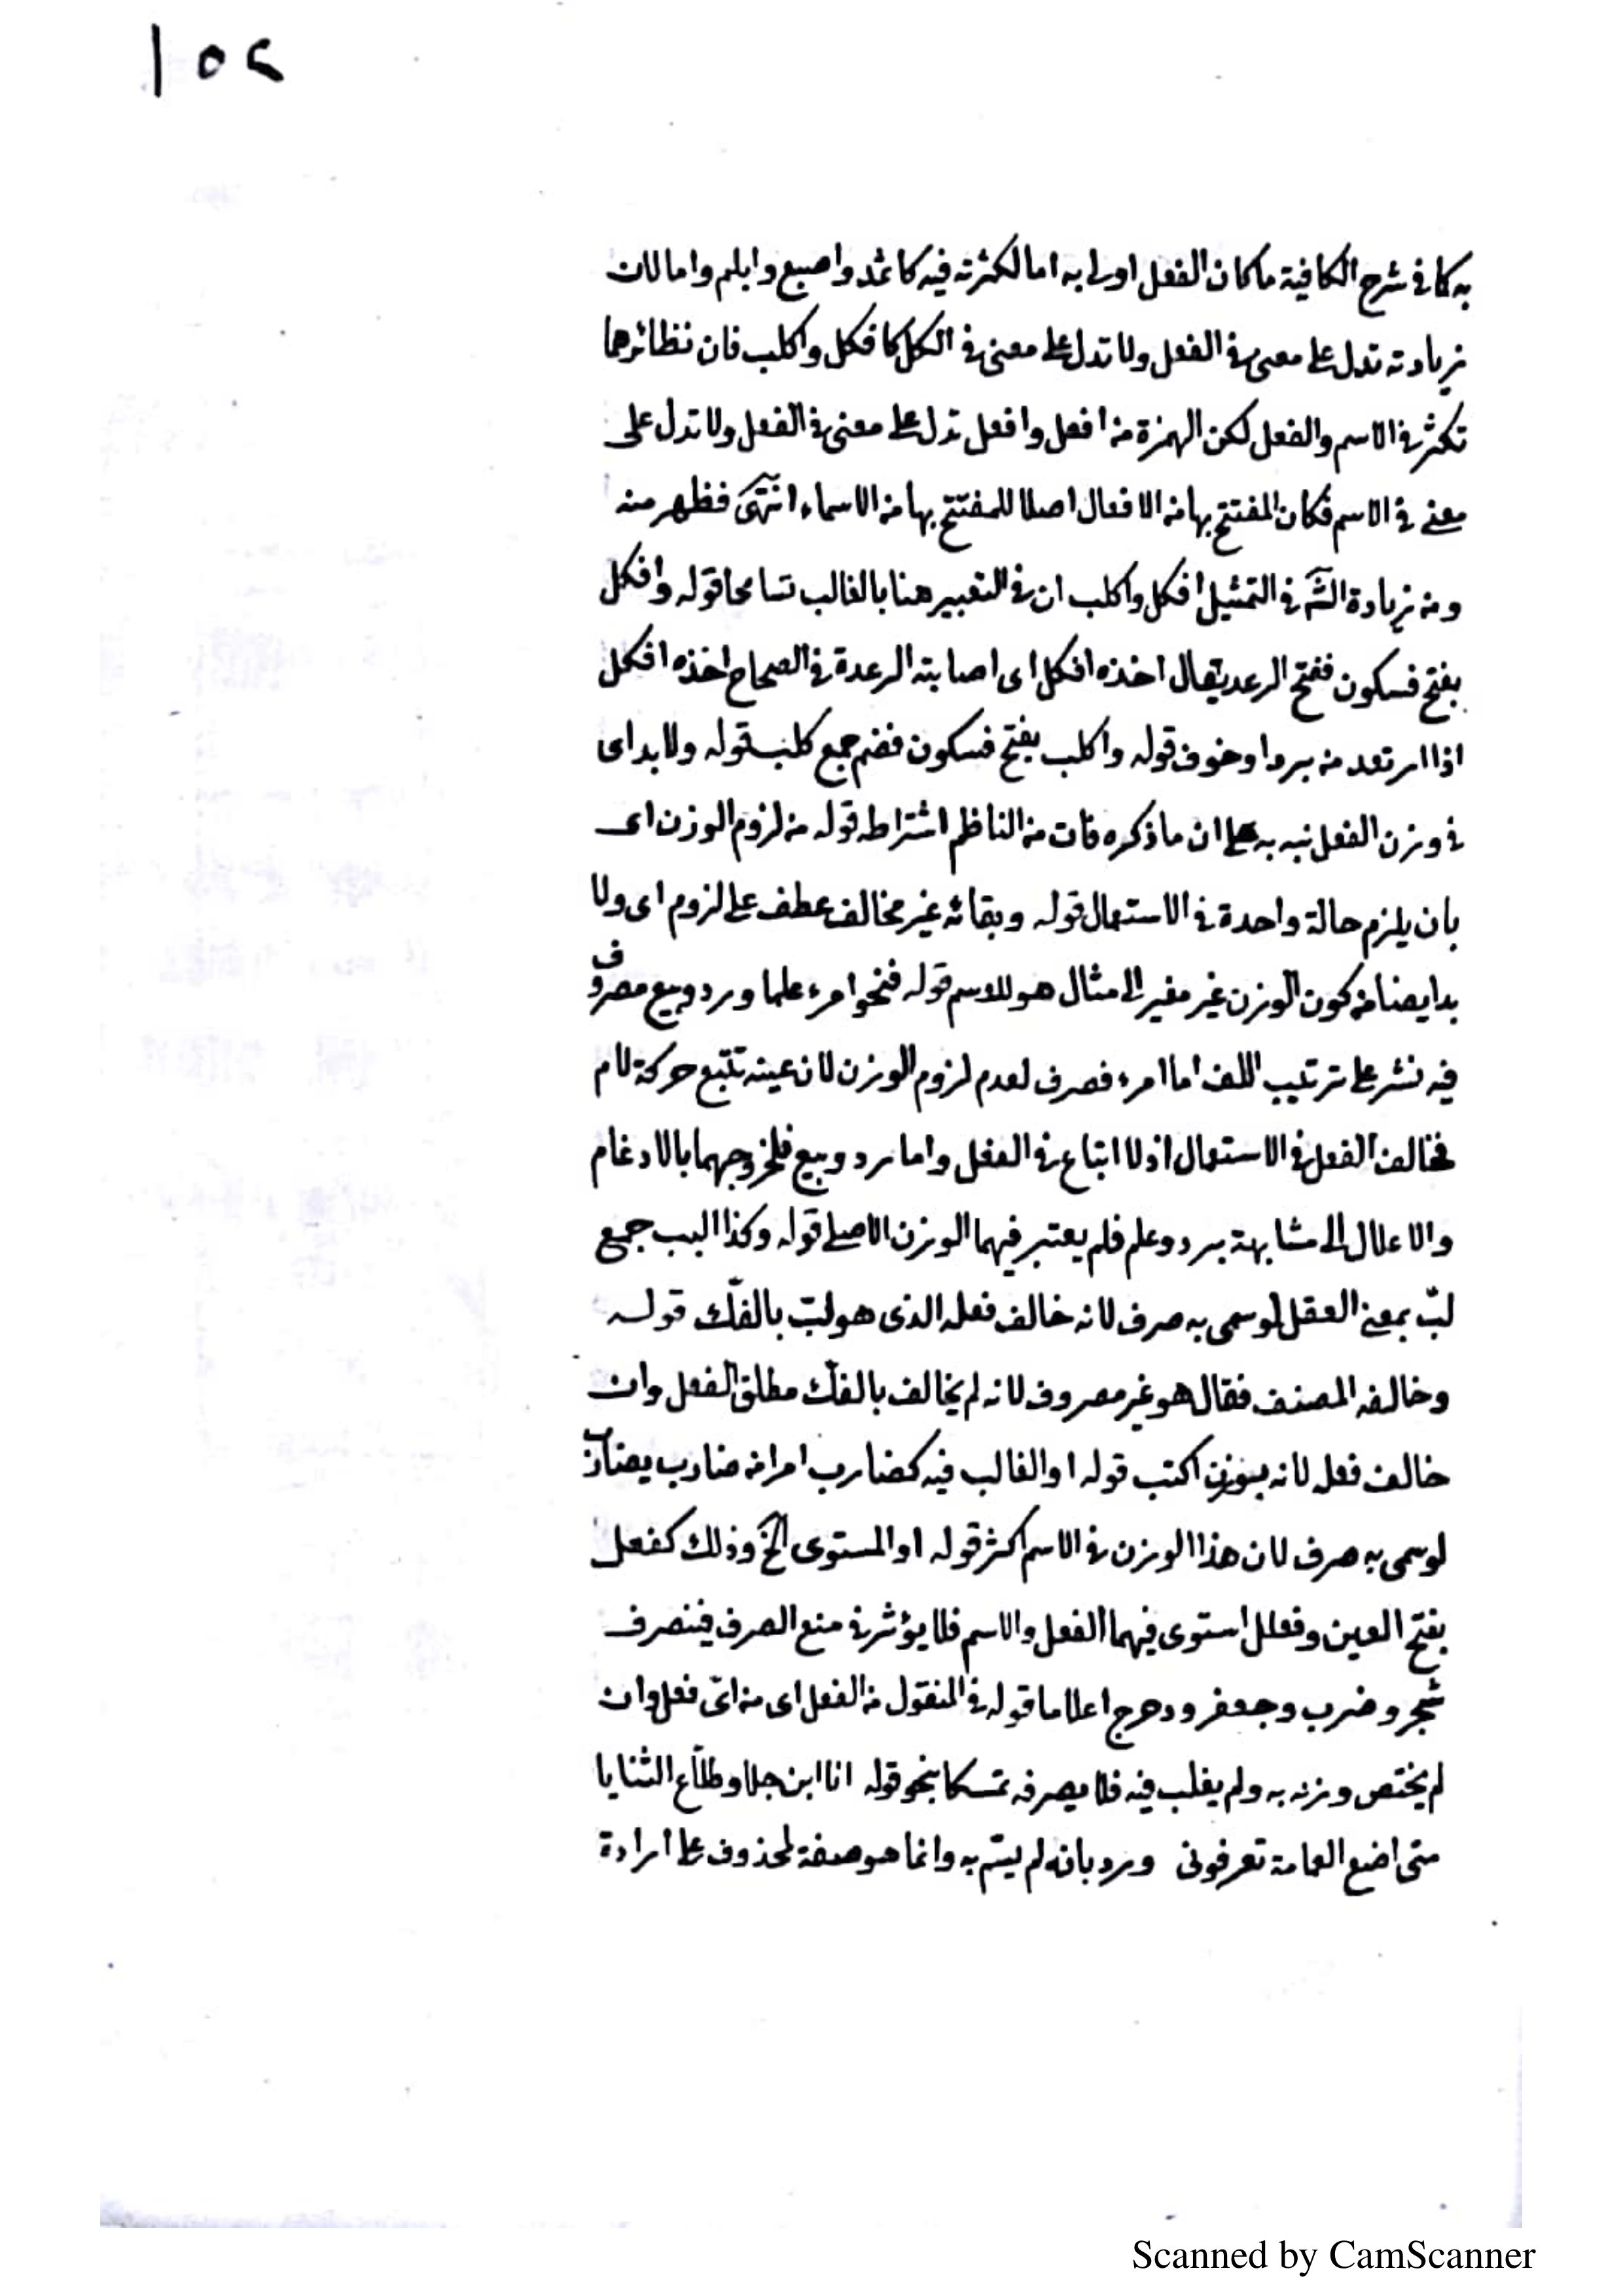 ١٥٢
به كما فى شرح الكافية ما كان الفعل اولى به اما لكثرته فيه كاثمد واصبع وابلم واما لان
زيادته تدل على معنى فى الفعل ولا تدل على معنى فى الكل كافكل واكلب فان نظائرهما
تكثر فى الاسم والفعل لكن الهمزة من افعل وافعل تدل على معنى فى الفعل ولا تدل على
معنى فى الاسم فكان المفتتح بها من الافعال اصلا للمفتتح بها من الاسماء انتهى فظهر منه
ومن زيادة الش فى التمثيل افكل واكلب ان فى التعبير هنا بالغالب تسامحا قوله وافكل
بفتح فسكون ففتح الرعد يقال اخذه افكل اى اصابته الرعدة فى الصحاح اخذه افكل
اذا ارتعد من برد او خوف قوله واكلب بفتح فسكون فضم جمع كلب قوله ولا بد اى
فى وزن الفعل نبه به على ان ما ذكره فات من الناظم اشتراطه قوله من لزوم الوزن اى
بان يلزم حالة واحدة فى الاستعمال قوله وبقائه غير مخالف عطف على لزوم اى ولا
بد ايضا من كون الوزن غير مغير الى مثال هو للاسم قوله فنحو امرء علما ورد وبيع مصروف
فيه نشر على ترتيب اللف اما امرء فصرف لعدم لزوم الوزن لان عينه تتبع حركة لام
فخالف الفعل فى الاستعمال اذ لا اتباع فى الفعل واما رد وبيع فلخروجهما بالادغام
والاعلال الى مشابهة برد وعلم فلم يعتبر فيهما الوزن الاصلى قوله وكذا البب جمع
لبّ بمعنى العقل لو سمى به صرف لانه خالف فعله الذى هو لبّ بالفكّ قوله
وخالفه المصنف فقال هو غير مصروف لانه لم يخالف بالفكّ مطلق الفعل وان
خالف فعله لانه بوزن اكتب قوله او الغالب فيه كضارب امرا من ضارب يضارب
لو سمى به صرف لان هذا الوزن فى الاسم اكثر قوله او المستوى الخ وذلك كفعل
بفتح العين وفعلل استوى فيهما الفعل والاسم فلا يؤثر فى منع الصرف فينصرف
شجر وضرب وجعفر ودحرج اعلاما قوله فى المنقول من الفعل اى من اىّ فعل وان
لم يختص وزنه به ولم يغلب فيه فلا يصرفه تمسكا بنحو قوله انا ابن جلا وطلّاع الثنايا
متى اضع العمامة تعرفونى ورد بانه لم يسمّ به وانما هو صفة لمحذوف على ارادة
Scanned by CamScanner